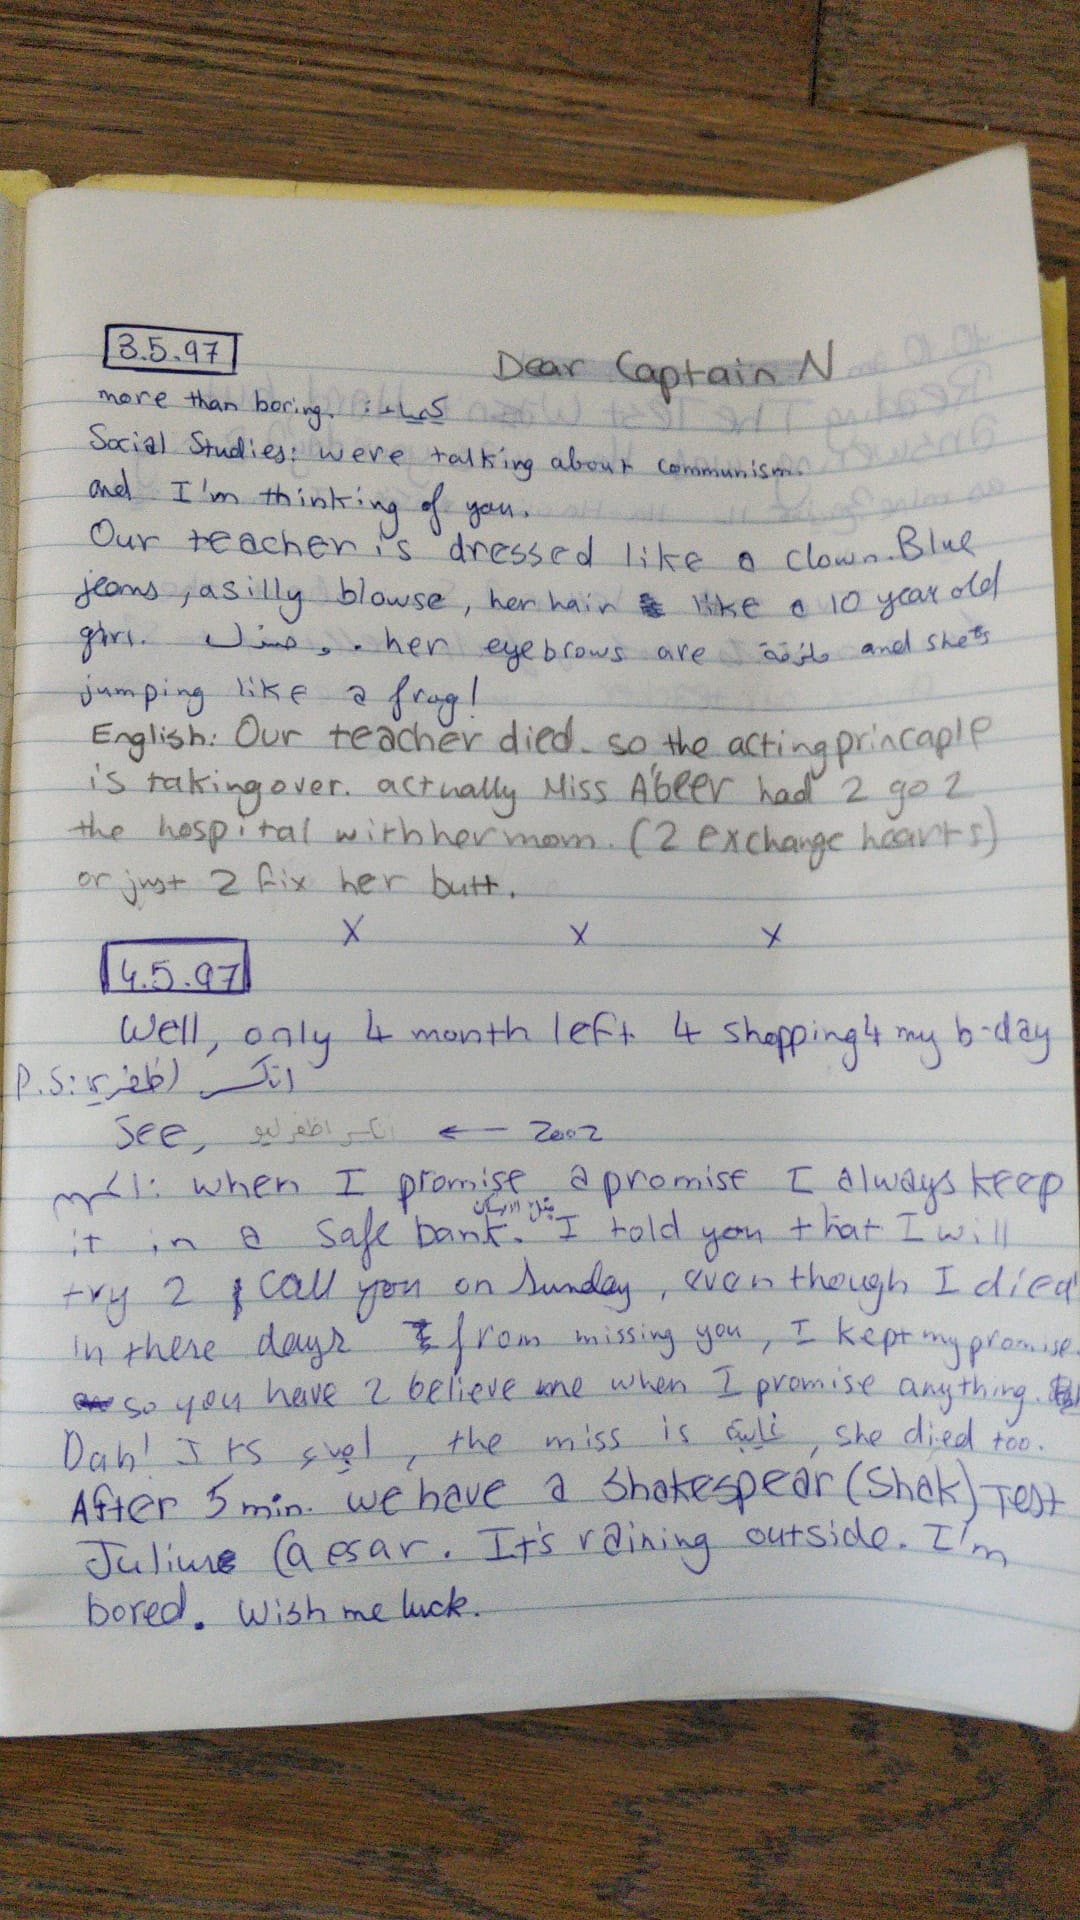 3.5.97
Dear Captain N
more than boring. كيمياء:
Social Studies: were talking about communism.
and I'm thinking of you.
Our teacher is dressed like a clown. Blue
jeans, a silly blouse, her hair like a 10 year old
girl. و صندل. her eyebrows are and she's
jumping like a frog!
English: Our teacher died. so the acting princaple
is taking over. actually Miss A'beer had 2 go 2
the hospital with her mom. (2 exchange hearts)
or just 2 fix her butt.
X X X
4.5.97
Well, only 4 month left 4 shopping 4 my b-day
P.S: انكسر اظفري
See, انكسر اظفر ليو ← 2002
when I promise a promise I always keep
it in a safe bank. I told you that I will
try 2 call you on Sunday, even though I died
in there days from missing you, I kept my promise.
so you have 2 believe me when I promise anything.
Dah! Its احياء, the miss is غايبة, she died too.
After 5 min. we have a Shakespear (Shak) Test
Julius Caesar. It's raining outside. I'm
bored. Wish me luck.